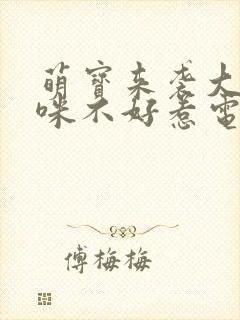 萌寶来袭大
咪不好惹電
傅梅梅